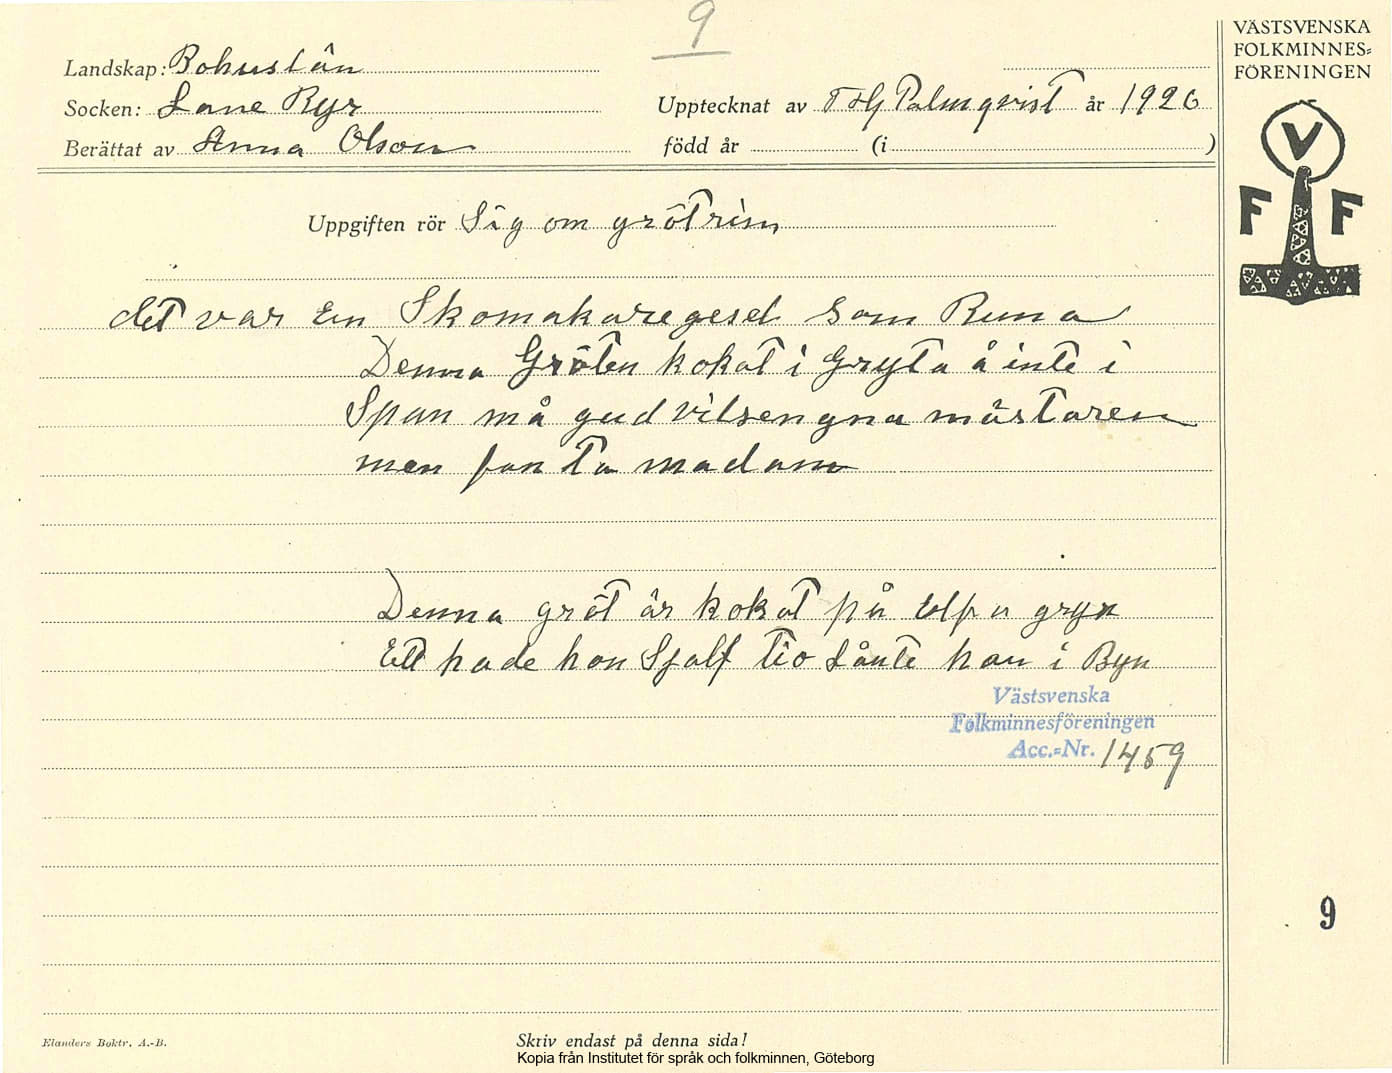 9
VÄSTSVENSKA
FOLKMINNES=
FÖRENINGEN
Landskap: Bohuslän
Socken: Lane Ryr
Upptecknat av Palmqvist år 1926
Berättat av Anna Olson
född år (i )
V
F F
Uppgiften rör Sig om grötrim
det var En Skomakaregesel Som Runa
Denna Gröten kokat i Gryta å inte i
Span må gud vilsengna mästaren
men fan ta madam
Denna gröt är kokat på elfva gryn
Ett hade hon Sjalf tio Lånte han i Byn
Västsvenska
Folkminnesföreningen
Acc.=Nr. 1459
9
Elanders Boktr. A.-B.
Skriv endast på denna sida!
Kopia från Institutet för språk och folkminnen, Göteborg